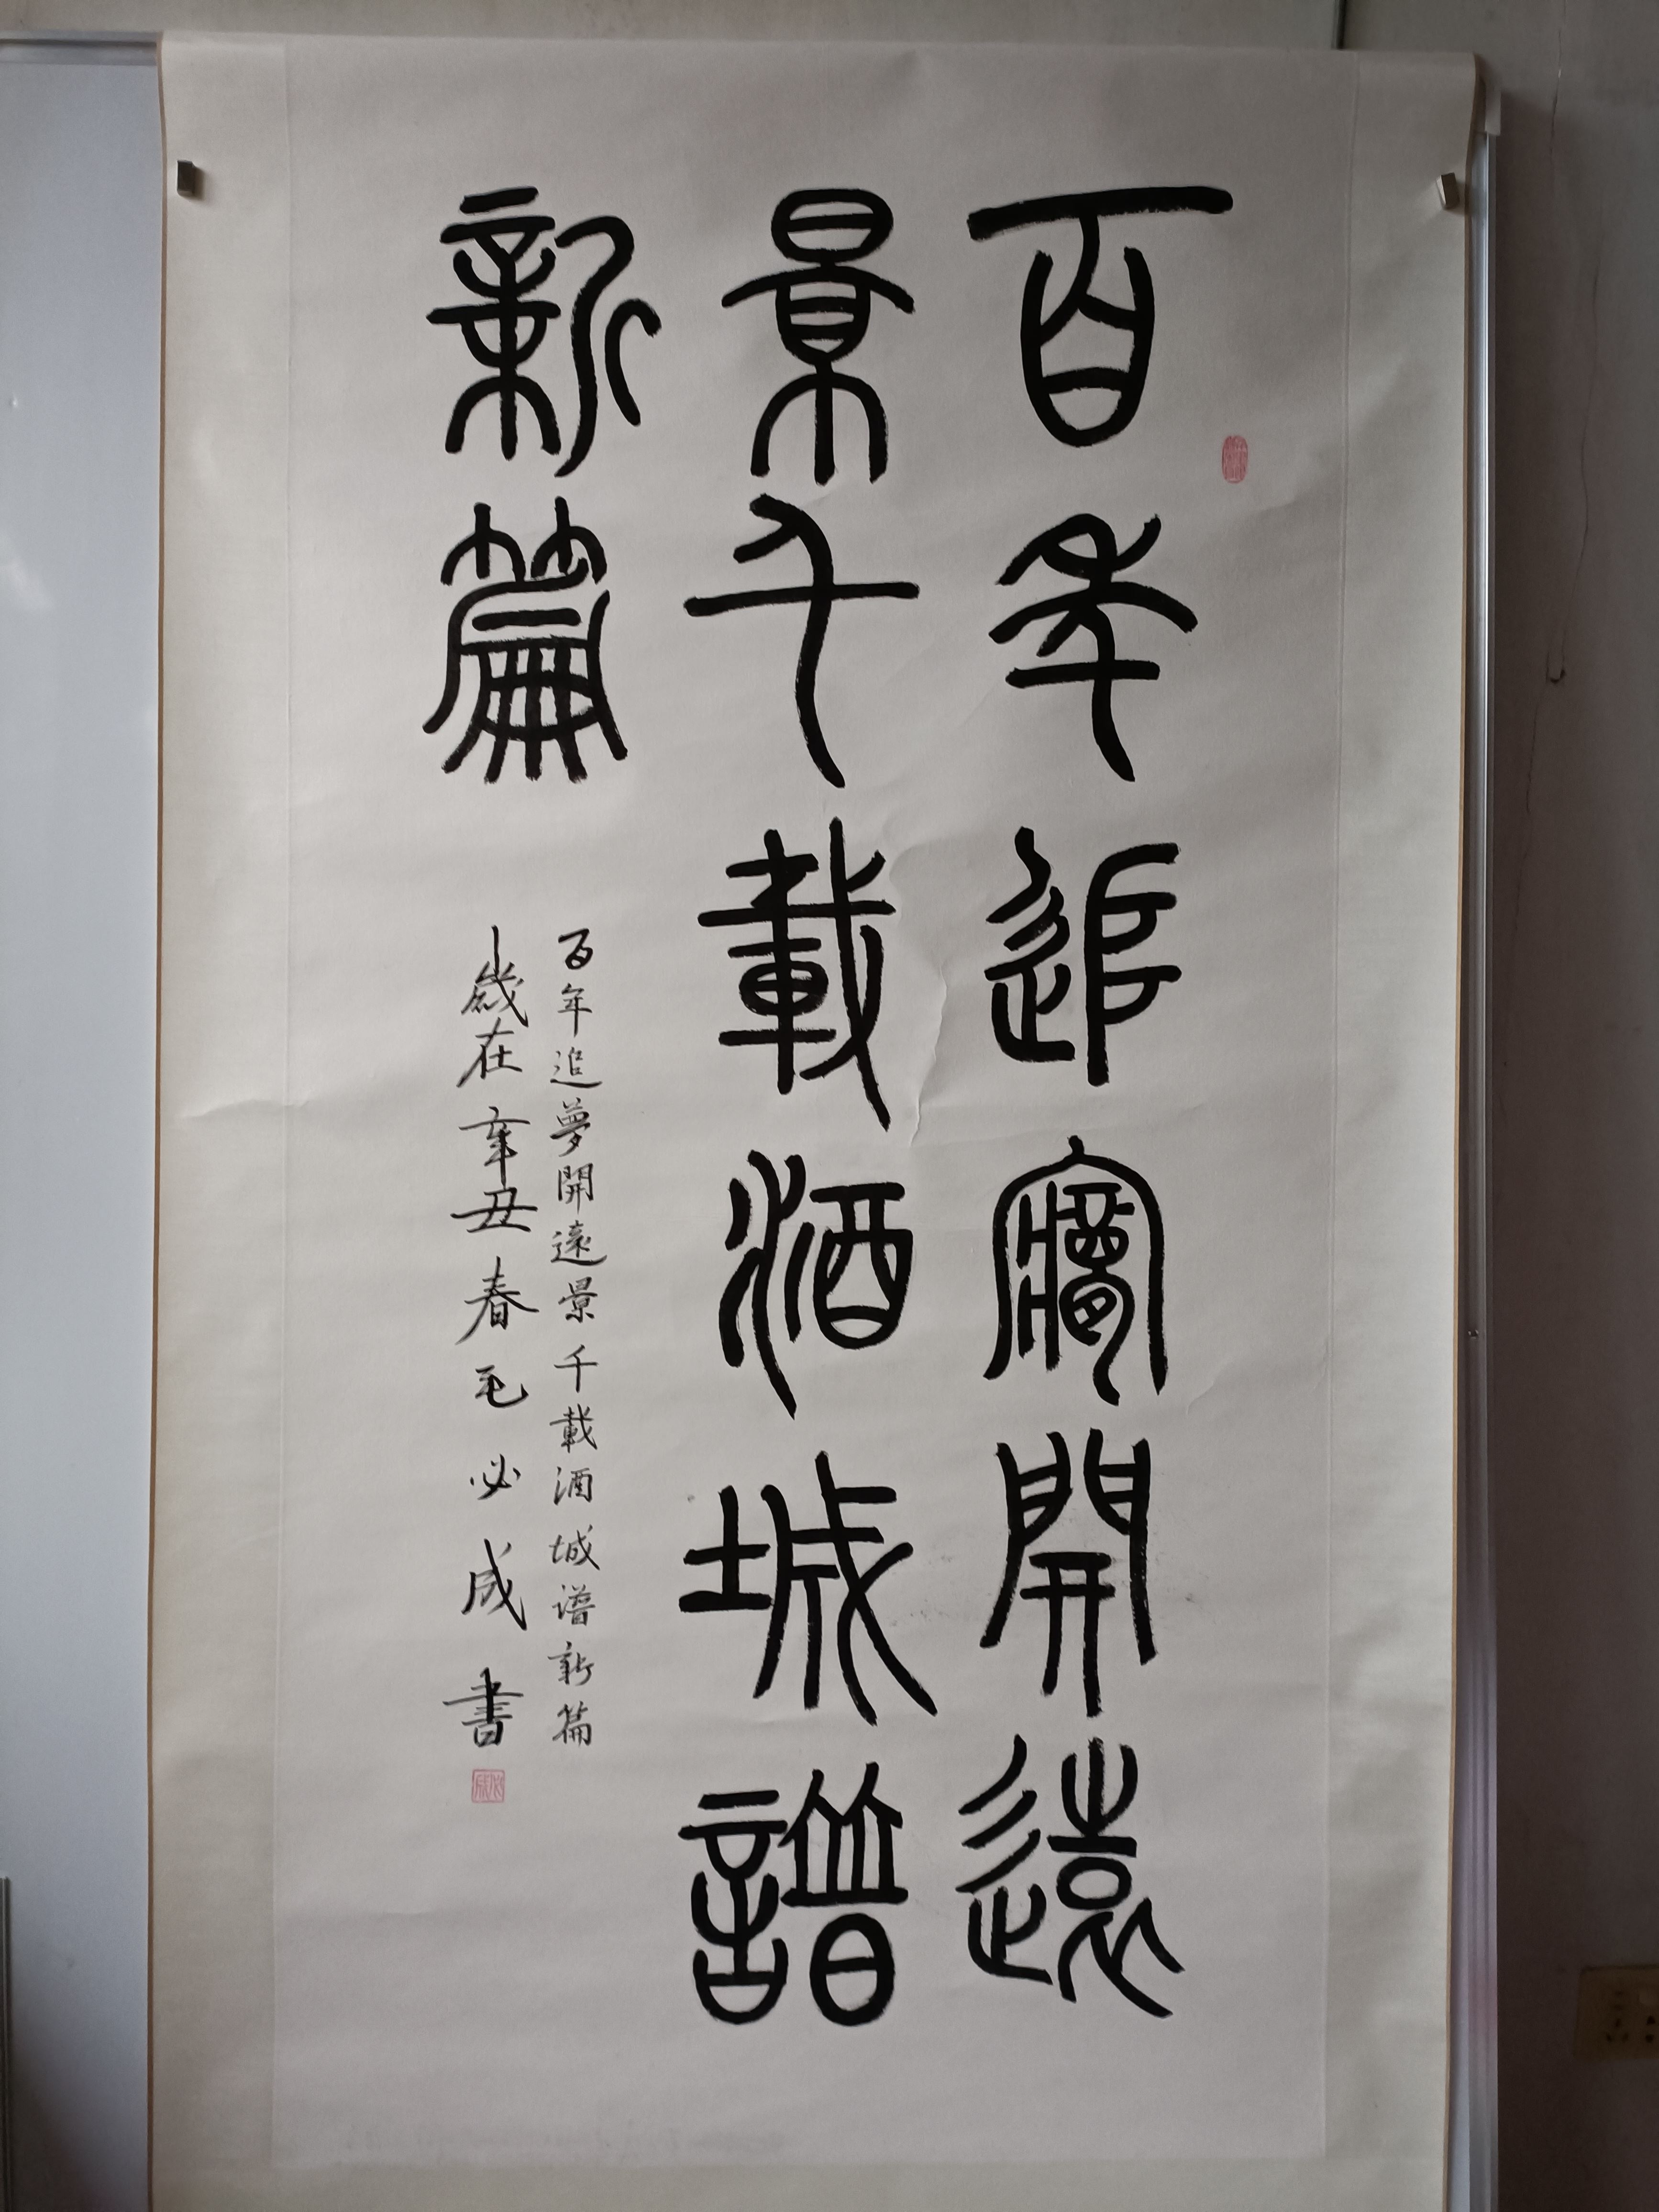 百年追夢開遠
景千載酒城譜
新篇
百年追夢開遠景千載酒城譜新篇
歲在辛丑春毛必成書